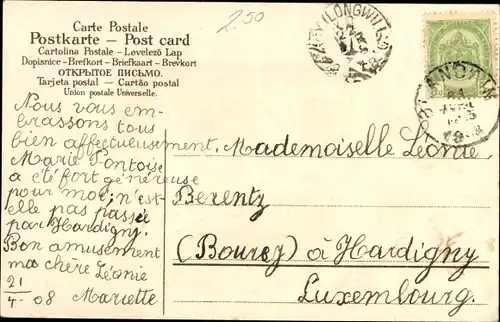 Carte Postale
Postkarte — Post card
Cartolina Postale - Levelező Lap
Dopisnice - Brefkort - Briefkaart - Brevkort
ОТКРЫТОЕ ПИСЬМО.
Tarjeta postal - Cartão postal
Union postale Universelle.
2.50
(LONGWILLY)
Nous vous em-
brassons tous
bien affectueusement.
Marie Pontoise
a été fort généreuse
pour moi; n'est-
elle pas passée
par Hardigny.
Bon amusement
ma chère Léonie
21/4-08 Mariette
Mademoiselle Léonie,
Berentz
(Bourcy) à Hardigny
Luxembourg.